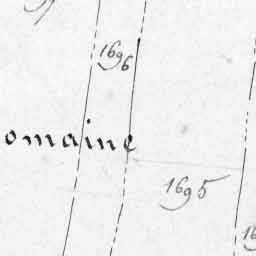 1696
omaine
1695